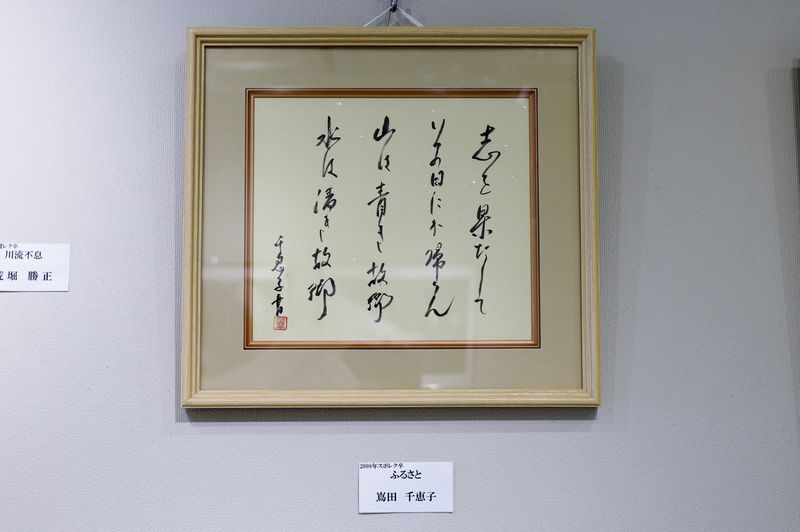 志を果たして
いつの日にか帰らん
山は青き故郷
水は清き故郷
千恵子書
2008年スポレク卒
ふるさと
嶌田 千恵子
レク卒
川流不息
堀 勝正